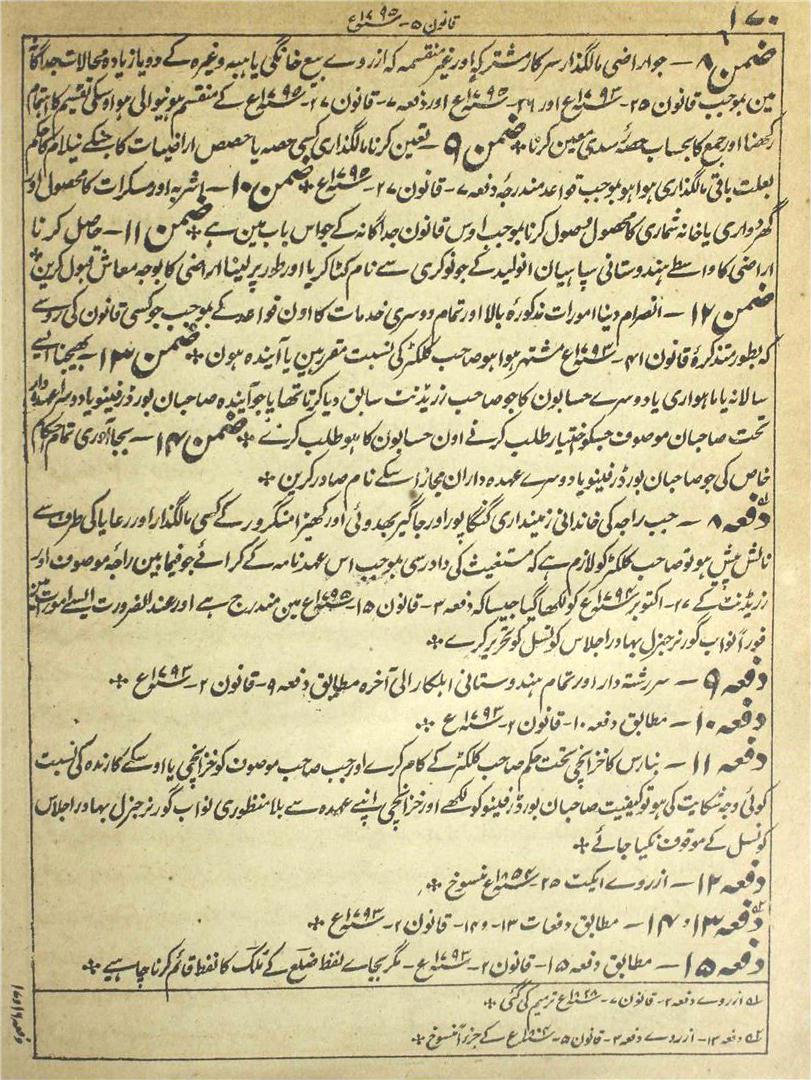 ۱۷۰
قانون ۵ - ۱۷۹۵ ع
ضمن ۸ — جو اراضی مالگذار سرکار مشترکہ اور غیر منقسمہ کہ ازروے بیع خانگی یا ہبہ وغیرہ کے دو یا زیادہ محالات جداگانہ
مین بموجب قانون ۲۵ - ۱۷۹۳ ع اور ۲۶ - ۱۷۹۵ ع اور دفعہ ۷ - قانون ۲۷ - ۱۷۹۵ ع کے منقسم ہونیوالی ہو اوسکی تقسیم کا اہتمام
رکھنا اور جمع کا بحساب حصۂ رسدی معین کرنا ٭ ضمن ۹ — تعین کرنا مالگذاری کسی حصہ یا حصص اراضیات کا جنکے نیلام کا حکم
بعلت باقی مالگذاری ہوا ہو بموجب قواعد مندرجۂ دفعہ ۷ - قانون ۲۷ - ۱۷۹۵ ع ٭ ضمن ۱۰ — اشربہ اور مسکرات کا محصول اور
گھر دواری یا خانہ شماری کا محصول وصول کرنا بموجب اوس قانون جداگانہ کے جو اس باب مین ہے ٭ ضمن ۱۱ — حاصل کرنا
اراضی کا واسطے ہندوستانی سپاہیان انولید کے جو نوکری سے نام کٹا کر یا اور طور پر لینا اراضی کا بوجہ معاش قبول کرین ٭
ضمن ۱۲ — انصرام دینا امورات مذکورۂ بالا اور تمام دوسری خدمات کا اون قواعد کے بموجب جو کسی قانون کی رو سے
کہ بطور متذکرۂ قانون ۴۱ - ۱۷۹۳ ع مشتہر ہوا ہو صاحب کلکٹر کی نسبت مقرر ہین یا آیندہ ہون ٭ ضمن ۱۳ — بھیجنا ایسے
سالانہ یا ماہواری یا دوسرے حسابون کا جو صاحب رزیڈنٹ سابق دیا کرتا تھا یا جو آیندہ صاحبان بورڈ رفینو یا دوسرا عہدہ دار
تحت صاحبان موصوف جسکو اختیار طلب کرنے اون حسابون کا ہو طلب کرے ٭ ضمن ۱۴ — بجا آوری تمام احکام
خاص کی جو صاحبان بورڈ رفینو یا دوسرے عہدہ داران مجاز اسکے نام صادر کرین ٭
دفعہ ۸ — جب راجہ کی خاندانی زمینداری گنگاپور اور جاگیر بھدوئی اور کھیڑا منگرور کے کسی مالگذار اور رعایا کی طرف سے
نالش پیش ہو تو صاحب کلکٹر کو لازم ہے کہ مستغیث کی دادرسی بموجب اس عہدنامہ کے کرائے جو فیما بین راجۂ موصوف اور
رزیڈنٹ کے ۲۷ - اکتوبر ۱۷۹۴ ع کو لکھا گیا جیسا کہ دفعہ ۳ - قانون ۱۵ - ۱۷۹۵ ع مین مندرج ہے اور عند الضرورت ایسے امورات مین
فوراً نواب گورنر جنرل بہادر اجلاس کونسل کو تحریر کرے ٭
دفعہ ۹ — سررشتہ دار اور تمام ہندوستانی اہلکار الی آخرہ مطابق دفعہ ۹ - قانون ۲ - ۱۷۹۳ ع ٭
دفعہ ۱۰ — مطابق دفعہ ۱۰ - قانون ۲ - ۱۷۹۳ ع ٭
دفعہ ۱۱ — بنارس کا خزانچی تحت حکم صاحب کلکٹر کے کام کرے اور جب صاحب موصوف کو خزانچی یا اوسکے کارندہ کی نسبت
کوئی وجہ شکایت کی ہو تو کیفیت صاحبان بورڈ رفینو کو لکھے اور خزانچی اپنے عہدہ سے بلا منظوری نواب گورنر جنرل بہادر اجلاس
کونسل کے موقوف نکیا جائے ٭
دفعہ ۱۲ — ازروے ایکٹ ۲۵ - ۱۸۵۴ ع منسوخ ٭
دفعہ ۱۳ و ۱۴ — مطابق دفعات ۱۳ - و ۱۴ - قانون ۲ - ۱۷۹۳ ع ٭
دفعہ ۱۵ — مطابق دفعہ ۱۵ - قانون ۲ - ۱۷۹۳ ع - مگر بجاے لفظ ضلع کے تلک کا لفظ قائم کرنا چاہیے ٭
۱ ازروے دفعہ ۲ - قانون ۷ - ۱۸۲۸ ع ترمیم کی گئی ٭
۲ دفعہ ۱۳ - ازروے دفعہ ۲ - قانون ۵ - ع کے جزءاً منسوخ ٭